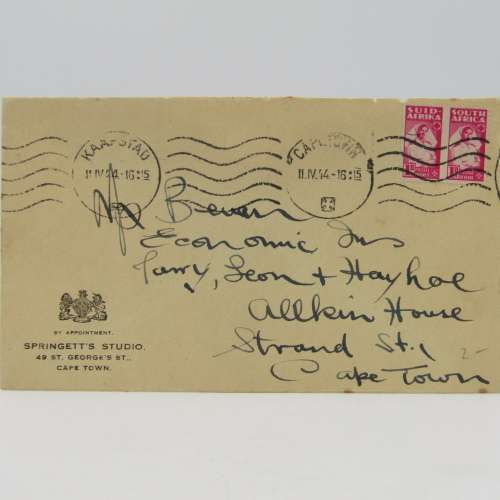 SUID-
AFRIKA
SOUTH
AFRICA
KAAPSTAD
11.IV.44-16:15
CAPE TOWN
11.IV.44-16:15
Bevan
Economic Ins
Jarry, Leon + Hayhoe
Allkin House
Strand St.,
Cape Town
2-
BY APPOINTMENT.
SPRINGETT'S STUDIO.
49 ST. GEORGE'S ST.,
CAPE TOWN.